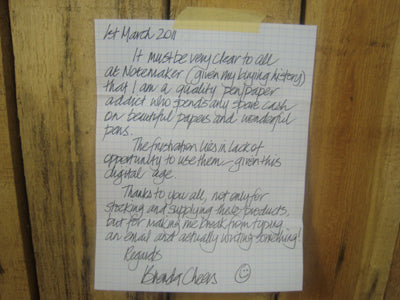 1st March 2011
It must be very clear to all
at Notemaker (given my buying history)
that I am a quality pen/paper
addict who spends any spare cash
on beautiful papers and wonderful
pens.
The frustration lies in lack of
opportunity to use them - given this
digital age.
Thanks to you all, not only for
stocking and supplying these products,
but for making me break from typing
an email and actually writing something!
Regards
Brenda Cheers